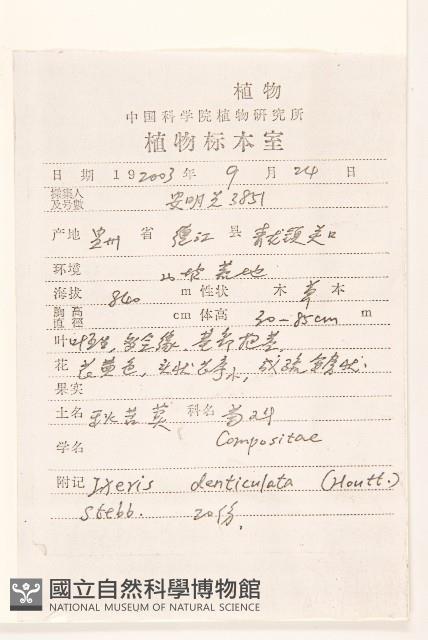 植物
中国科学院植物研究所
植物标本室
日期 19 2003 年 9 月 24 日
採集人
及号數 安明先 3851
产地 贵州 省 德江 县 青龙镇关口
环境 山坡荒地
海拔 840 m 性状 木 草 本
胸高
直径 cm 体高 30-85cm m
叶 互生, 全缘, 基部抱茎
花 花黄色, 头状花序
果实
土名 苦荬 科名 菊科
学名 Compositae
附记 Ixeris denticulata (Houtt.)
Stebb. 20份.
國立自然科學博物館
NATIONAL MUSEUM OF NATURAL SCIENCE